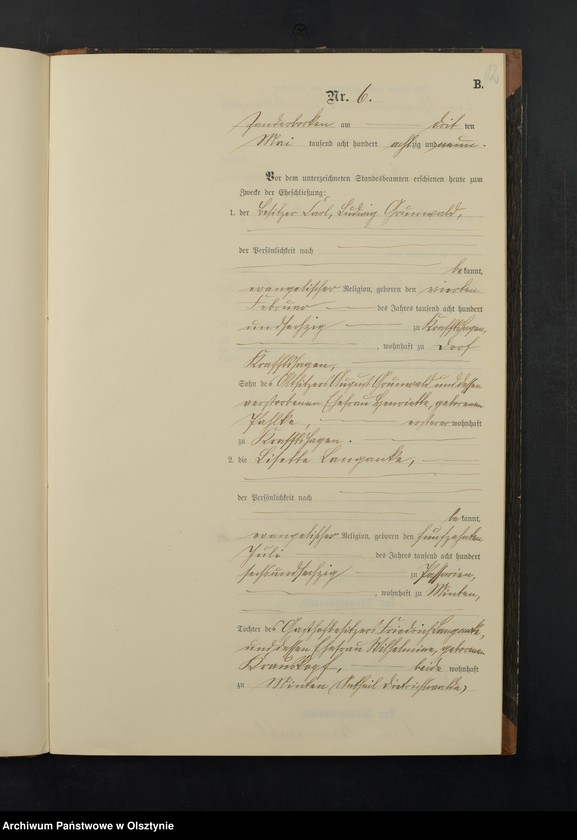 B.
12
Nr. 6.
Sonderborken am dritten
Mai tausend acht hundert achtzig und neun.
Vor dem unterzeichneten Standesbeamten erschienen heute zum
Zwecke der Eheschließung:
1. der Besitzer Carl, Ludwig Grunwald,
der Persönlichkeit nach
bekannt,
evangelischer Religion, geboren den vierten
Februar des Jahres tausend acht hundert
undsechzig zu Kraftshagen,
, wohnhaft zu Dorf
Kraftshagen,
Sohn des Altsitzers August Grunwald und dessen
verstorbenen Ehefrau Henriette, geborenen
ersterer wohnhaft
zu Kraftshagen.
2. die Lisette Langanke,
der Persönlichkeit nach
bekannt,
evangelischer Religion, geboren den fünfzehnten
Juli des Jahres tausend acht hundert
sechsundsechzig zu
, wohnhaft zu Minten,
Tochter des Gasthofbesitzers Friedrich Langanke,
und dessen Ehefrau Wilhelmine, geborenen
Krauskopf, beide wohnhaft
zu Minten (Antheil Dietrichswalde)
Archiwum Państwowe w Olsztynie